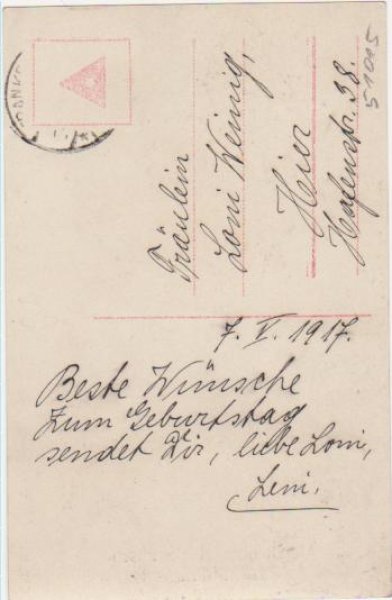 Fräulein
Loni Weinig,
Hier
Hafenstr. 38.
51015
7. V. 1917.
Beste Wünsche
zum Geburtstag
sendet Dir, liebe Loni,
Leni.